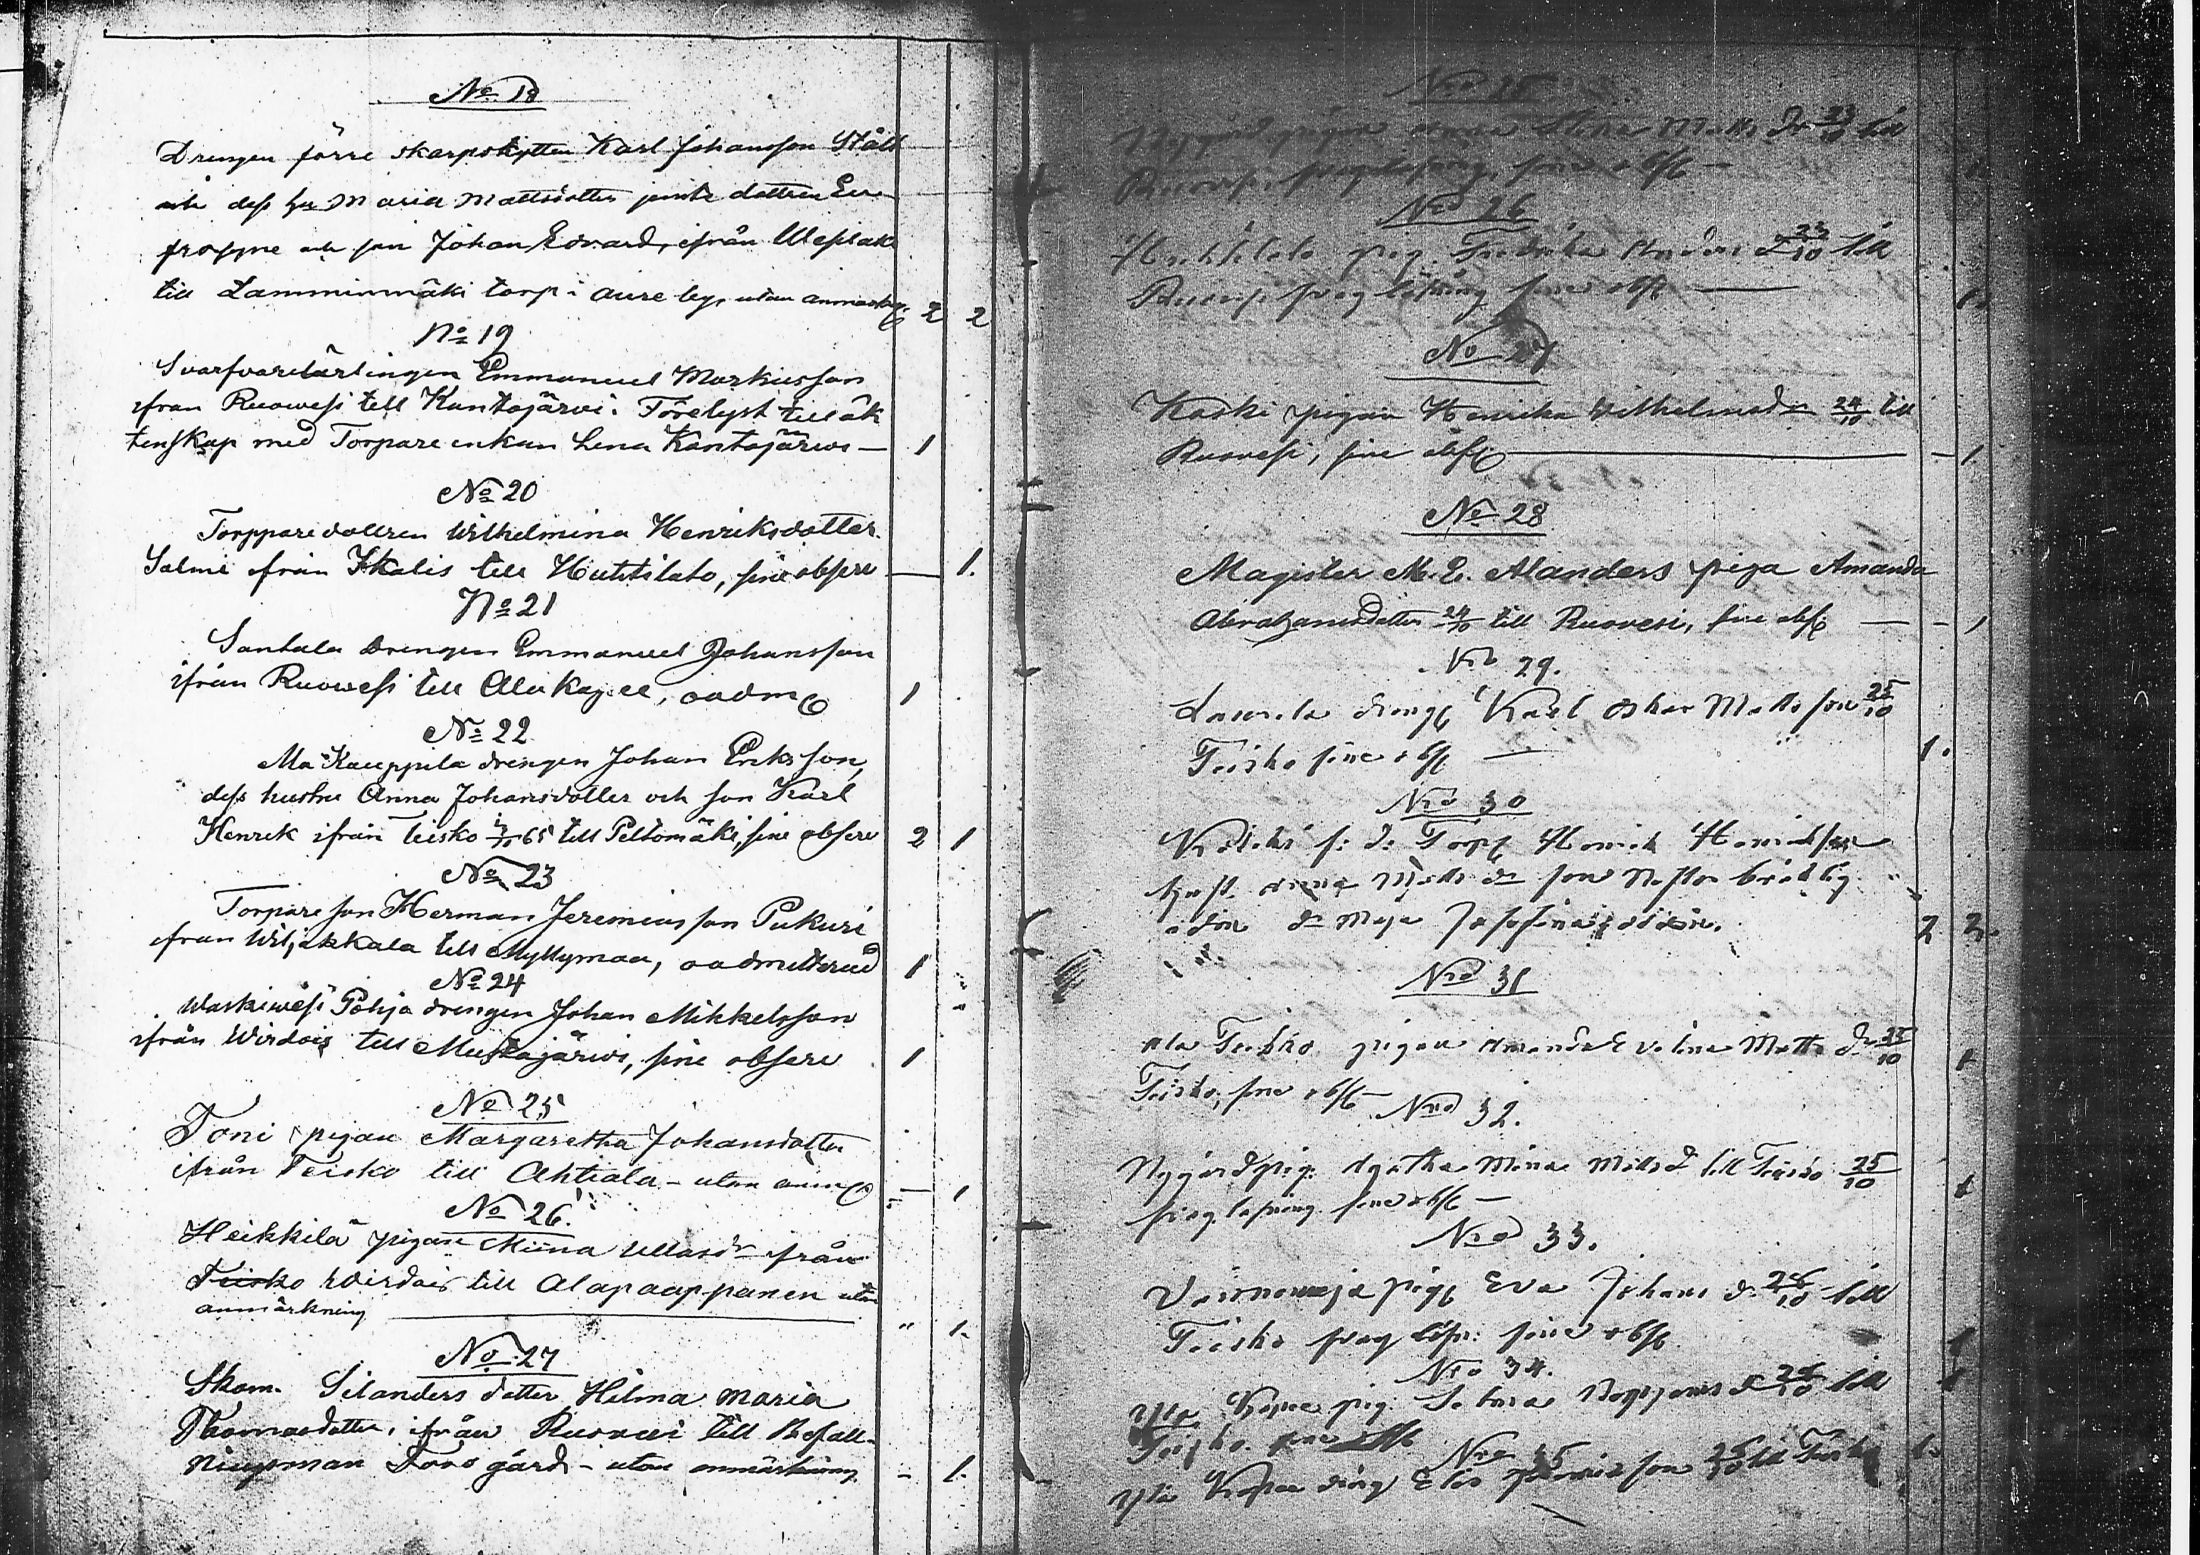 No 18
Drengen förre skarpskytten Karl Johansson Stålt
och dess hu Maria Mattsdotter jemte dottren Eu
frosyne och son Johan Edvard, ifrån
till Lamminmäki torp i Aure by, utan anmärkg. 2 2
No 19
Svarfvarelärlingen Emmanuel Markusson
ifran Ruowesi till Kantojärvi. Förelyst till äk
tenskap med Torpare enkan Lena Kantojärwi — 1
No 20
Torpparedottren Wilhelmina Henriksdotter
Salmi från Ikalis till Huhtilato, sine observ — 1.
No 21
Santala Drengen Emmanuel Johansson
ifrån Ruowesi till Alakajee, oadm 1
No 22
Ma Kauppila drengen Johan Eriksson,
dess hustru Anna Johansdotter och son Karl
Henrik ifrån Teisko 65 till Peltomäki, sine observ 2 1
No 23
Torpare son Herman Jeremiasson Pukuri
ifran Wiljakkala till Myllymaa, oadmitterad 1
No 24
Waskiwesi Pohja drengen Johan Mikkelsson
ifrån Wirdois till Mustajärwi, sine observ 1
No 25
Toni pigan Margaretha Johansdotter
ifrån Teisko till Ahtiala - utan anm — 1
No 26.
Heikkilä pigan Miina Ullasdr från
Teisko Wirdois till Alapaappanen utan
anmärkning — " 1.
No 27
Skom. Silanders dotter Hilma Maria
Thomasdotter, ifrån Ruovesi till Befall-
ningsman Toos gård - utan anmärkning - 1.
No 25
Nygård pigan Anna Stina Matts dr 23/10 till
Ruoves. sine obs —
No 26
Huhtilato pig. Fredrika Anders dr 23/10 till
Ruoves. sine obs —
No 27
Koski pigan Henrika Wilhelmsdr 24/10 till
Ruovesi, sine obs — 1.
No 28
Magister M. E. Alanders piga Amanda
Abrahamsdotter 24/10 till Ruovesi, sine obs: — 1
No 29.
Laurila dreng Karl Oskar Mattsson 25/10
Teisko sine obs — 1.
No 30
f: d: Torp Henrik Henriksson
hust. Anna Matts dr son Nestor
dr Maja Josefina 2 2.
No 31
Ala Teisko pigan Amanda Evelina Matts dr 25/10
Teisko, sine obs — 1
No 32.
Nygård pig. Agatha Mina Matts dr till Teisko 25/10
sine obs — 1
No 33.
pig Eva Johans dr 26/10 till
Teisko sine obs
No 34.
Yta pig. 26/10 till
Teisko. sine obs
No 35
Yta dreng 26/10 till Teisko 1.